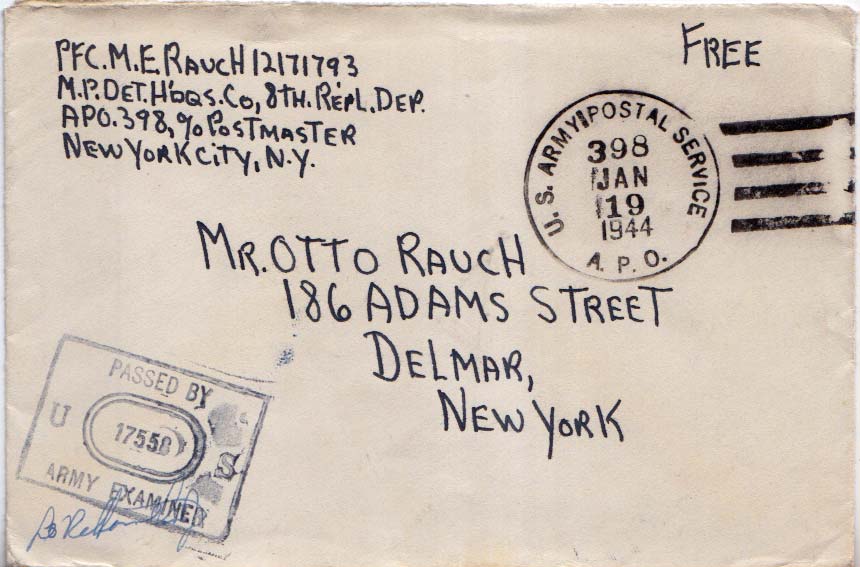 PFC. M. E. RAUCH 12171793
M.P. DET. H'DQS. CO, 8TH. REPL. DEP.
APO. 398, % POSTMASTER
NEW YORK CITY, N.Y.
FREE
U. S. ARMY POSTAL SERVICE
398
JAN
19
1944
A. P. O.
MR. OTTO RAUCH
186 ADAMS STREET
DELMAR,
NEW YORK
PASSED BY
U S
17558
ARMY EXAMINER